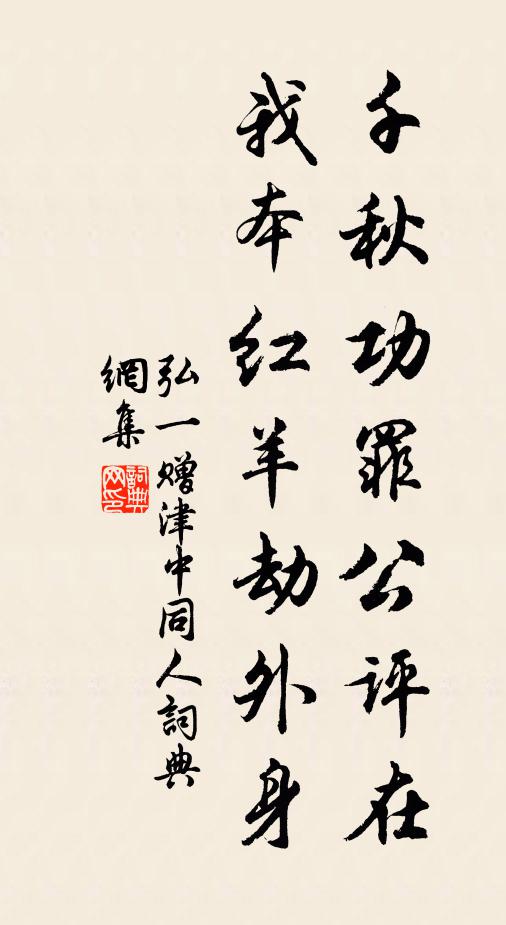 千秋功罪公评在
我本红羊劫外身
弘一赠津中同人詞典
網集
詞典
网印